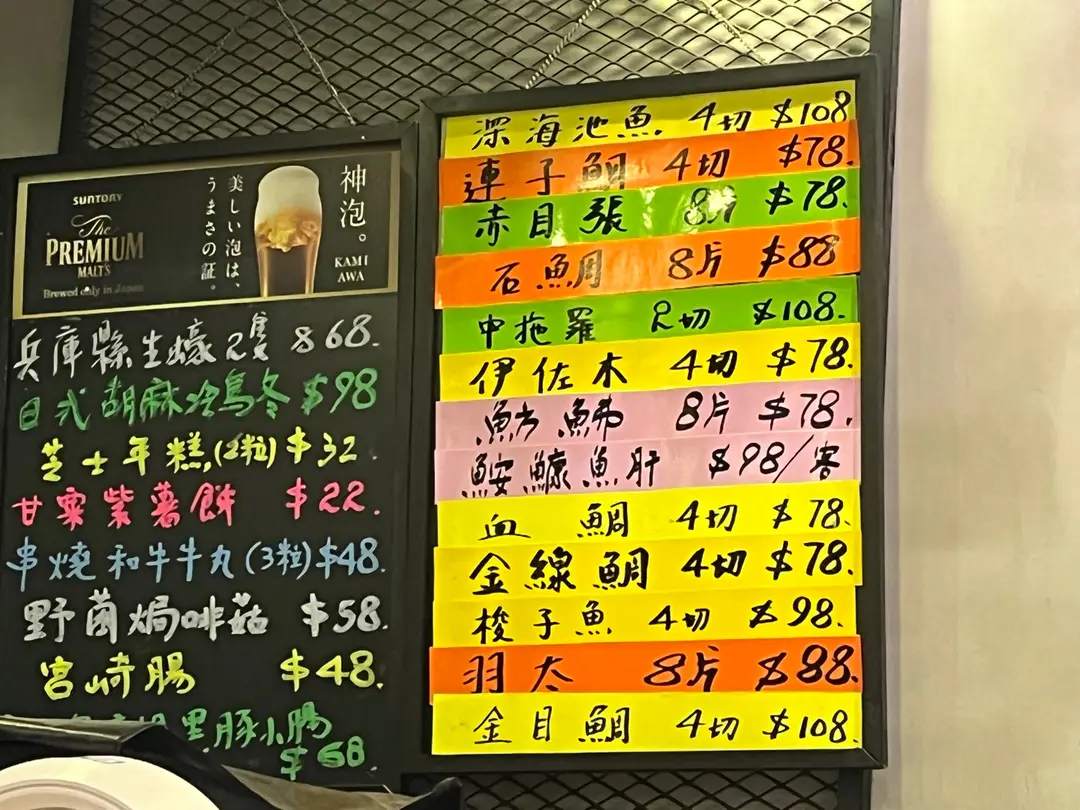 SUNTORY
The
PREMIUM
MALT'S
Brewed only in Japan
神泡。
KAMI
AWA
美しい泡は、
うまさの証。
兵庫縣生蠔2隻 $68.
日式胡麻冷烏冬 $98
芝士年糕,(2粒) $32.
甘栗紫薯餅 $22.
串燒和牛牛丸(3粒) $48.
野菌焗啡菇 $58.
宮崎腸 $48.
黑豚小腸
$68.
深海池魚 4切 $108
連子鯛 4切 $78.
赤目張 8片 $78.
石鯛 8片 $88
中拖羅 2切 $108.
伊佐木 4切 $78.
魴鮄 8片 $78.
鮟鱇魚肝 $98/客
血鯛 4切 $78.
金線鯛 4切 $78.
梭子魚 4切 $98.
羽太 8片 $88.
金目鯛 4切 $108.